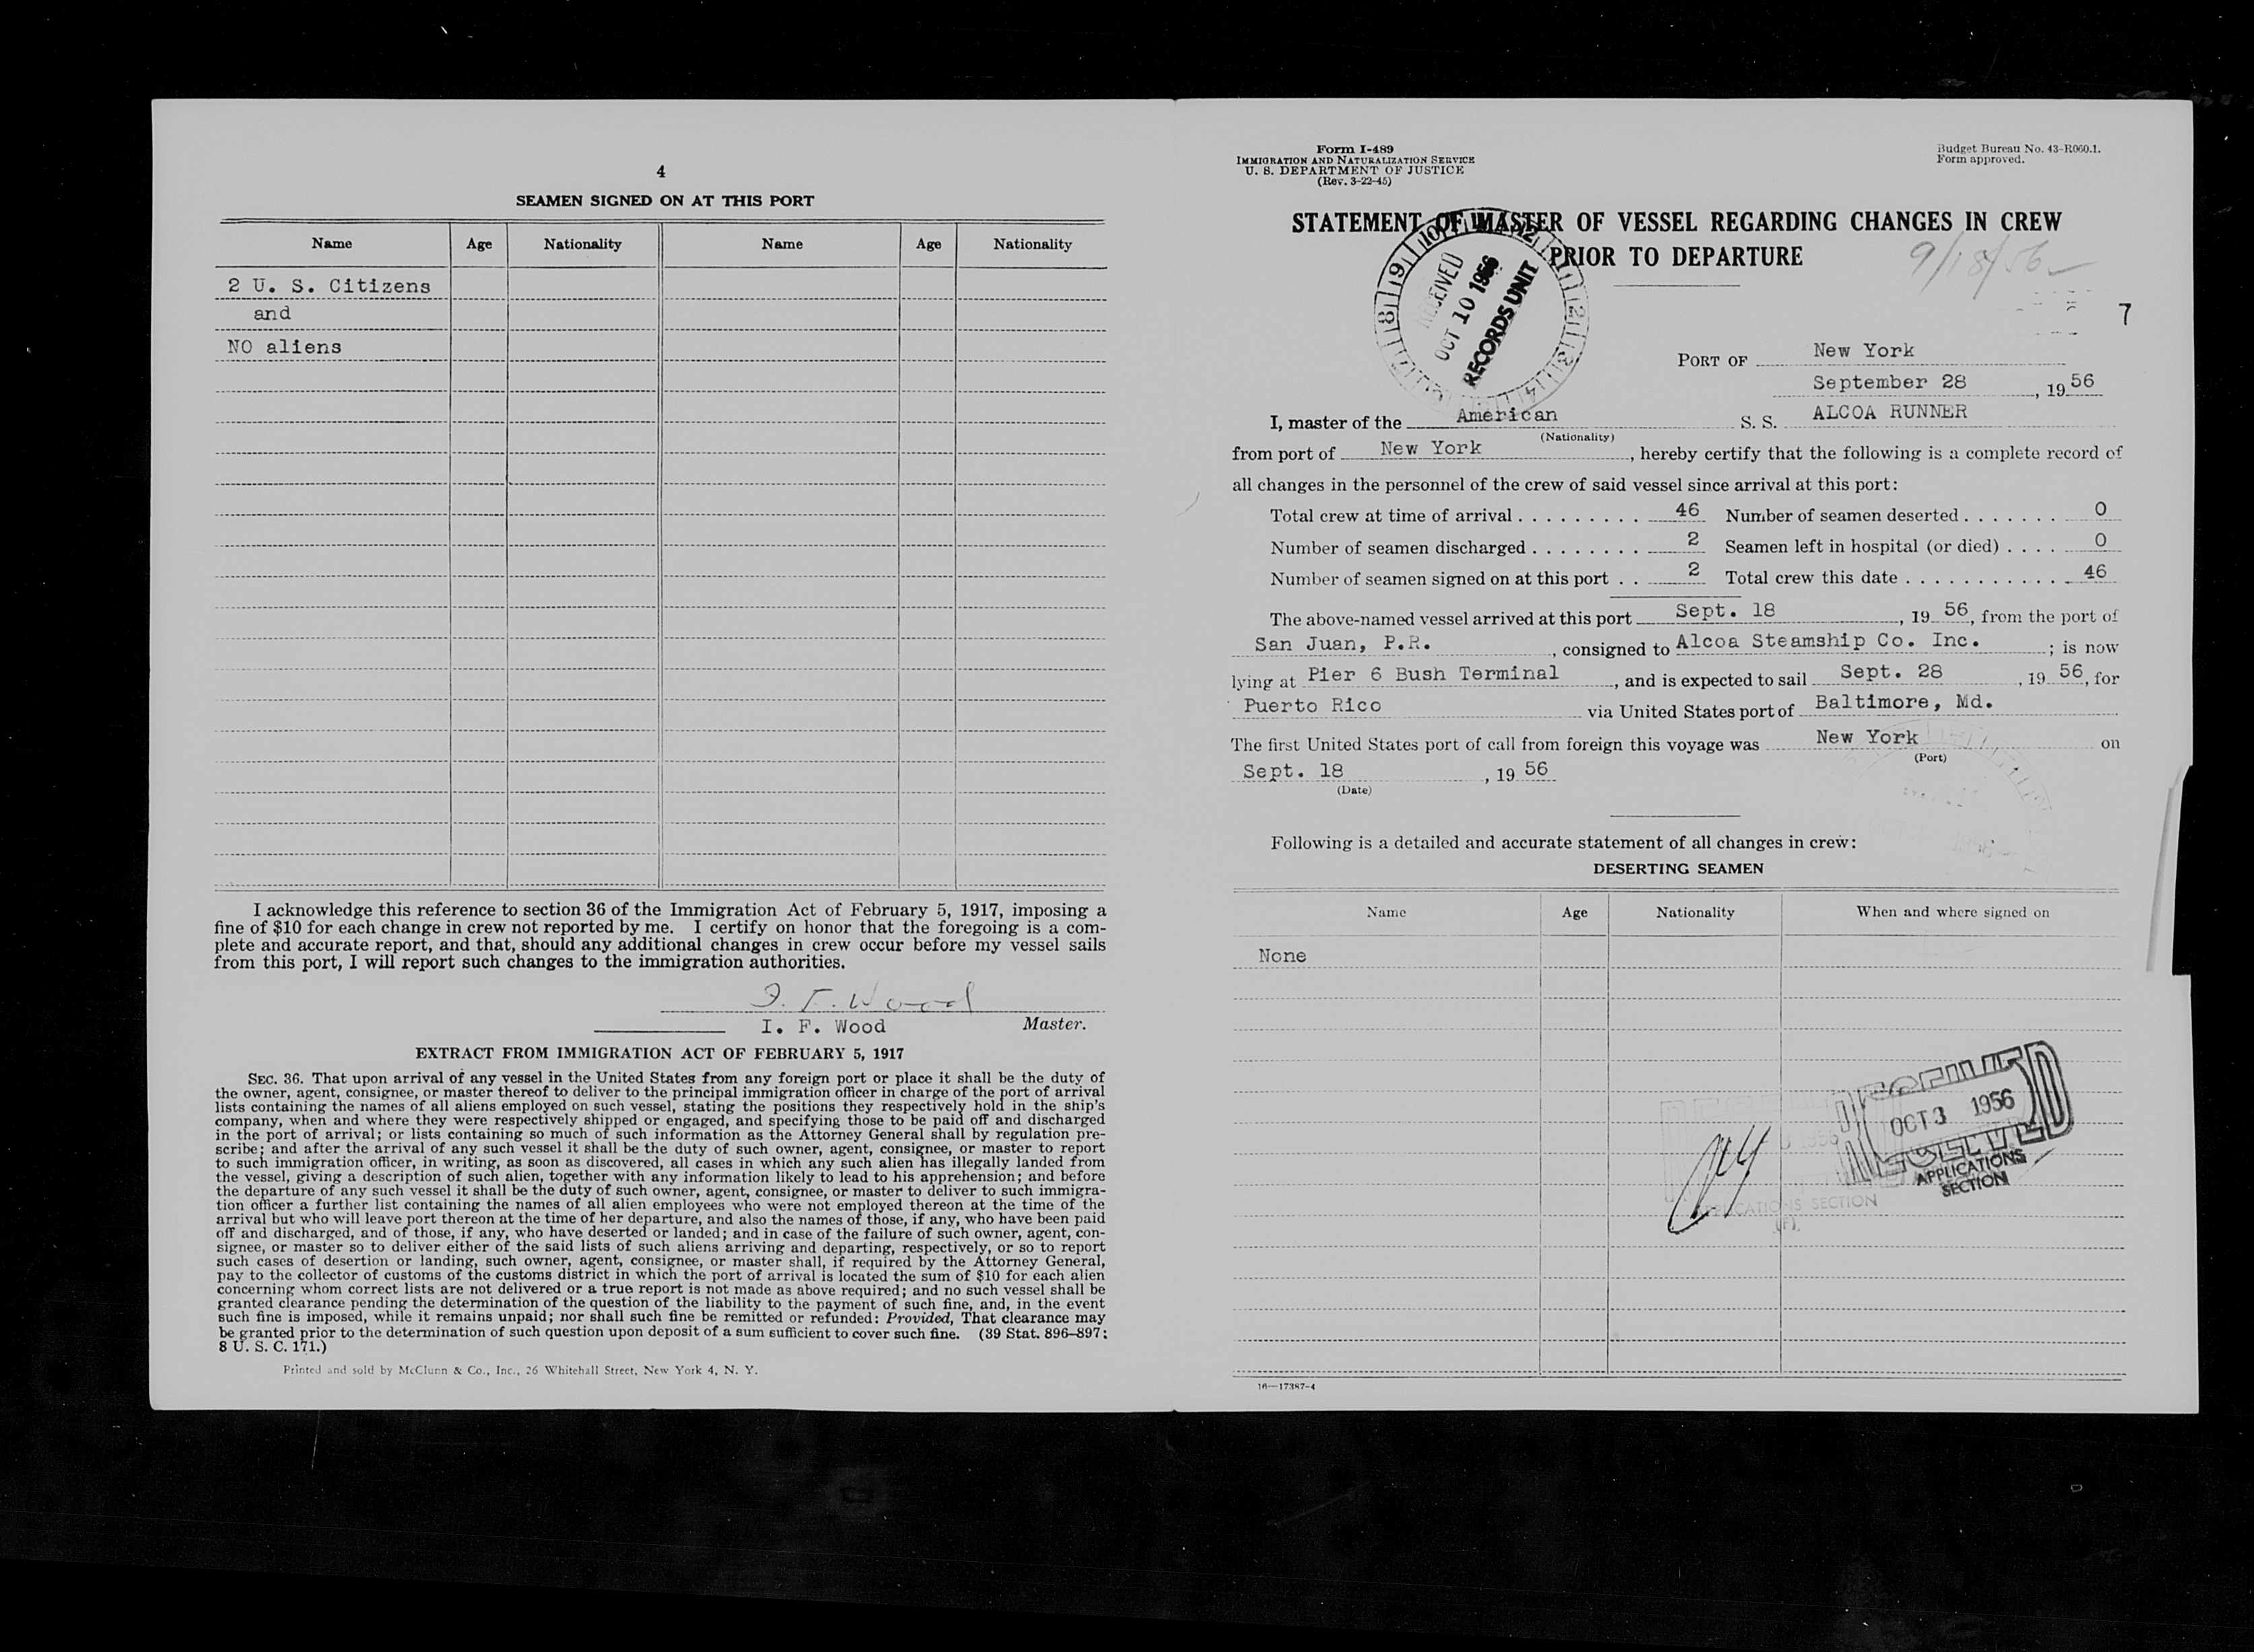 4
SEAMEN SIGNED ON AT THIS PORT
Name Age Nationality Name Age Nationality
2 U. S. Citizens
and
NO aliens
I acknowledge this reference to section 36 of the Immigration Act of February 5, 1917, imposing a
fine of $10 for each change in crew not reported by me. I certify on honor that the foregoing is a com-
plete and accurate report, and that, should any additional changes in crew occur before my vessel sails
from this port, I will report such changes to the immigration authorities.
I. F. Wood
I. F. Wood Master.
EXTRACT FROM IMMIGRATION ACT OF FEBRUARY 5, 1917
SEC. 36. That upon arrival of any vessel in the United States from any foreign port or place it shall be the duty of
the owner, agent, consignee, or master thereof to deliver to the principal immigration officer in charge of the port of arrival
lists containing the names of all aliens employed on such vessel, stating the positions they respectively hold in the ship's
company, when and where they were respectively shipped or engaged, and specifying those to be paid off and discharged
in the port of arrival; or lists containing so much of such information as the Attorney General shall by regulation pre-
scribe; and after the arrival of any such vessel it shall be the duty of such owner, agent, consignee, or master to report
to such immigration officer, in writing, as soon as discovered, all cases in which any such alien has illegally landed from
the vessel, giving a description of such alien, together with any information likely to lead to his apprehension; and before
the departure of any such vessel it shall be the duty of such owner, agent, consignee, or master to deliver to such immigra-
tion officer a further list containing the names of all alien employees who were not employed thereon at the time of the
arrival but who will leave port thereon at the time of her departure, and also the names of those, if any, who have been paid
off and discharged, and of those, if any, who have deserted or landed; and in case of the failure of such owner, agent, con-
signee, or master so to deliver either of the said lists of such aliens arriving and departing, respectively, or so to report
such cases of desertion or landing, such owner, agent, consignee, or master shall, if required by the Attorney General,
pay to the collector of customs of the customs district in which the port of arrival is located the sum of $10 for each alien
concerning whom correct lists are not delivered or a true report is not made as above required; and no such vessel shall be
granted clearance pending the determination of the question of the liability to the payment of such fine, and, in the event
such fine is imposed, while it remains unpaid; nor shall such fine be remitted or refunded: Provided, That clearance may
be granted prior to the determination of such question upon deposit of a sum sufficient to cover such fine. (39 Stat. 896–897;
8 U. S. C. 171.)
Printed and sold by McClunn & Co., Inc., 26 Whitehall Street, New York 4, N. Y.
Form I-489
IMMIGRATION AND NATURALIZATION SERVICE
U. S. DEPARTMENT OF JUSTICE
(Rev. 3-22-45)
Budget Bureau No. 43-R060.1.
Form approved.
STATEMENT OF MASTER OF VESSEL REGARDING CHANGES IN CREW
PRIOR TO DEPARTURE
9/18/56
7
RECEIVED
OCT 10 1956
RECORDS UNIT
PORT OF New York
September 28, 1956
I, master of the American S. S. ALCOA RUNNER
(Nationality)
from port of New York, hereby certify that the following is a complete record of
all changes in the personnel of the crew of said vessel since arrival at this port:
Total crew at time of arrival . . . . . . . . . 46 Number of seamen deserted . . . . . . . 0
Number of seamen discharged . . . . . . . . 2 Seamen left in hospital (or died) . . . . 0
Number of seamen signed on at this port . . 2 Total crew this date . . . . . . . . . . . . 46
The above-named vessel arrived at this port Sept. 18, 19 56, from the port of
San Juan, P.R., consigned to Alcoa Steamship Co. Inc.; is now
lying at Pier 6 Bush Terminal, and is expected to sail Sept. 28, 19 56, for
Puerto Rico via United States port of Baltimore, Md.
The first United States port of call from foreign this voyage was New York on
(Port)
Sept. 18, 19 56
(Date)
Following is a detailed and accurate statement of all changes in crew:
DESERTING SEAMEN
Name Age Nationality When and where signed on
None
RECEIVED
OCT 3 1956
APPLICATIONS
SECTION
16—17387-4